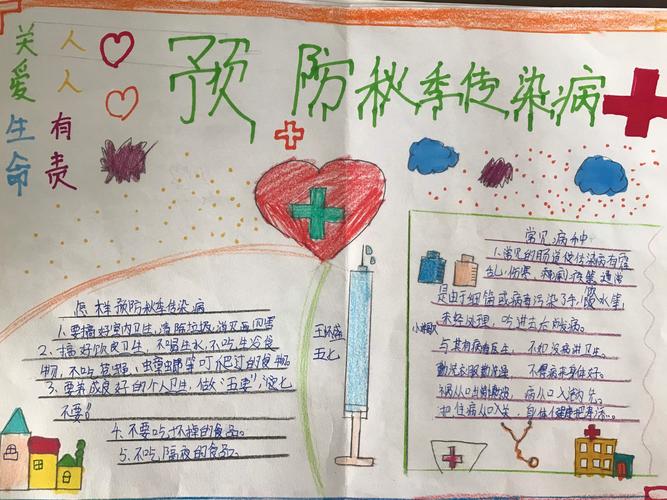 关爱生命
人人有责
预防秋季传染病
怎样预防秋季传染病
1.要搞好室内卫生,清除垃圾,消灭
2.搞好饮食卫生,不喝生水,不吃生冷食
物,不吃苍蝇、虫叮爬过的食物
3.要养成良好的个人卫生,做"五要",
不要!
4.不要吃坏掉的食品。
5.不吃隔夜的食品。
五七
常见病种
1.常见的肠道传染病有霍
乱、伤寒、痢疾
是由于细菌或病毒污染了手、水果,
未经处理,吃进去
与其有病看医生,不如没病讲卫生。
勤洗衣服勤洗澡
病从口入
把住病从口入关,身体健康